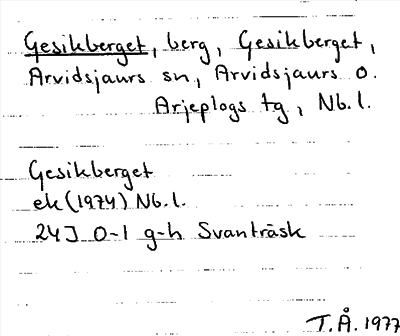 Gesikberget, berg, Gesikberget,
Arvidsjaurs sn, Arvidsjaurs o.
Arjeplogs tg, Nb.l.
Gesikberget
ek (1974) Nb.l.
24J 0-1 g-h Svanträsk
T.Å. 1977